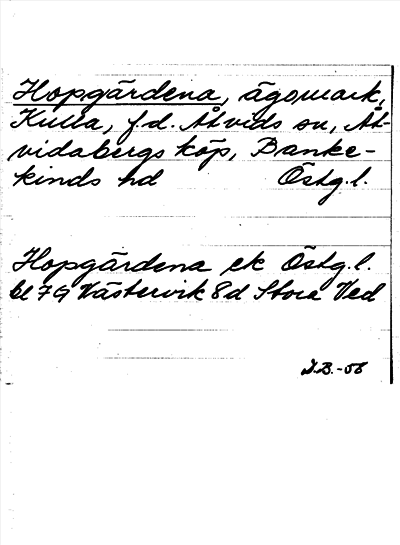 Hopgärdena, ägomark,
Kulla, f.d. Åtvids sn, Åt-
vidabergs köp, Banke-
kinds hd Östg.l.
Hopgärdena ek Östg.l.
bl 7G Västervik 8d Stora Ved
I.B.-56